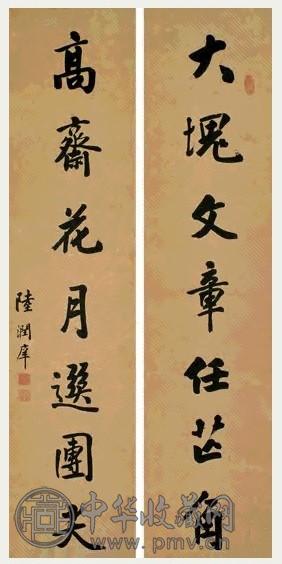 大塊文章任芒角
髙齋花月選團尖
陸潤庠
中华收藏网
www.pmv.cn